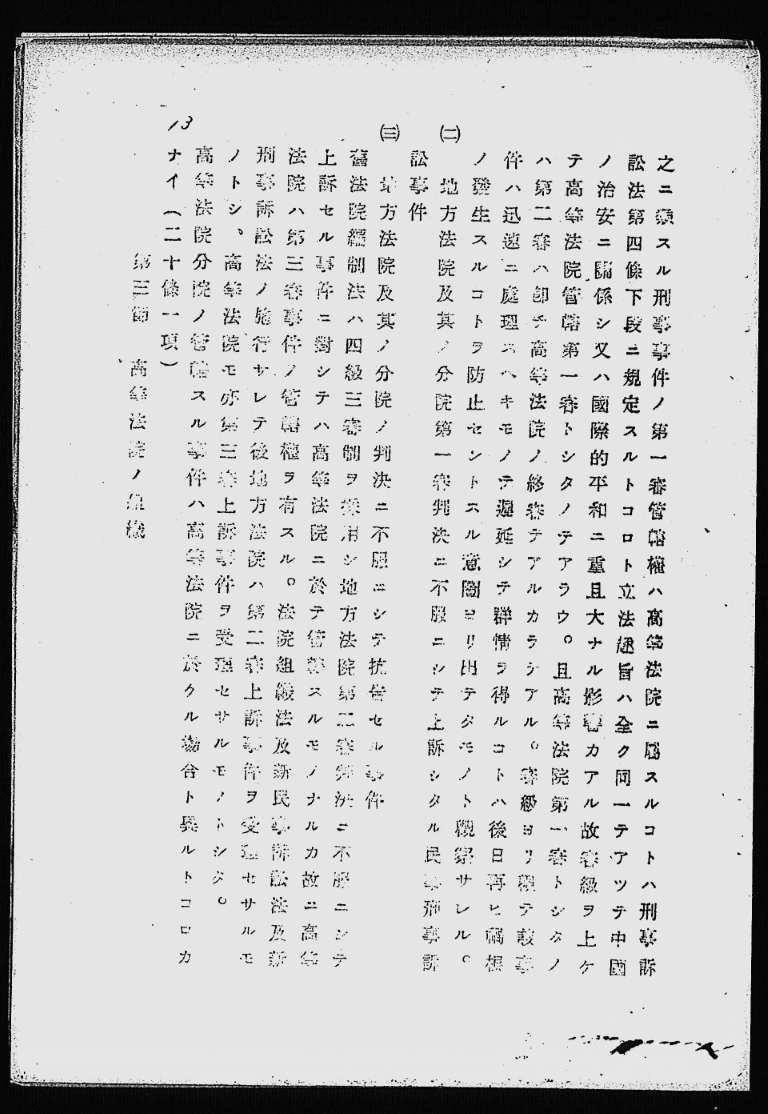 之ニ類スル刑事事件ノ第一審管轄權ハ高等法院ニ屬スルコトハ刑事訴
訟法第四條下段ニ規定スルトコロト立法趣旨ハ全ク同一テアツテ中國
ノ治安ニ關係シ又ハ國際的平和ニ重且大ナル影響カアル故審級ヲ上ケ
テ高等法院管轄第一審トシタノテアラウ。且高等法院第一審トシタノ
ハ第二審ハ卽チ高等法院ノ終審テアルカラテアル。審級ヨリ觀テ該事
件ハ迅速ニ處理スヘキモノテ遲延シテ群情ヲ得ルコトハ後日再ヒ禍根
ノ發生スルコトヲ防止セントスル意圖ヨリ出テタモノト觀察サレル。
㈡　地方法院及其ノ分院第一審判決ニ不服ニシテ上訴シタル民事刑事訴
訟事件
㈢　地方法院及其ノ分院ノ判決ニ不服ニシテ抗告セル事件
舊法院編制法ハ四級三審制ヲ採用シ地方法院第二審判決ニ不服ニシテ
上訴セル事件ニ對シテハ高等法院ニ於テ管轄スルモノナルカ故ニ高等
法院ハ第三審事件ノ管轄權ヲ有スル。法院組織法及新民事訴訟法及新
刑事訴訟法ノ施行サレテ後地方法院ハ第二審上訴事件ヲ受理セサルモ
ノトシ、高等法院モ亦第三審上訴事件ヲ受理セサルモノトシタ。
高等法院分院ノ管轄スル事件ハ高等法院ニ於クル場合ト異ルトコロカ
ナイ(二十條一項)
第三節　高等法院ノ組織
13